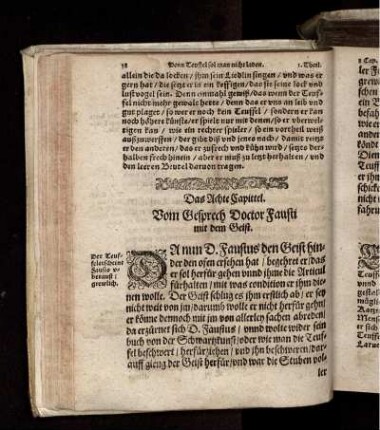 38 Wenn Teuffel sol man nicht laden. 1. Theil.
allein die da locken / jhm sein Liedlin singen / vnd was er
gern hat / die setzt er in ein keffigen / das sie seine lock vnd
lustvogel sein. Denn einmahl gewiß / das wenn der Teuf-
fel nicht mehr gewalt hette / denn das er vns an leib vnd
gut plaget / so wer er noch kein Teuffel / sondern er kan
noch höhere künsten er spiele nur mit denen / so er vberwel-
tigen kan / wie ein rechter spieler / so ein vortheil weiß
auszuwerffen / der gibt diß vnd jenes nach / damit reitzt
er den anderen / das er zufrech vnd kühn wird / setzts der-
halben frech hinein / aber er muß zu letzt herhalten / vnd
den leeren Beutel daruon tragen.
Das Achte Capittel.
Vom Gesprech Doctor Fausti
mit dem Geist.
Der Teuf-
Fausto
gewlich.
DA nun D. Faustus den Geist hin-
der den ofen ersehen hat / begehret er / das
er sol herfür gehen vnnd jhme die Articul
fürhalten / mit was condition er jhm die-
nen wolle. Der Geist schlug es jhm erstlich ab / er sey
nicht weit von jm / darumb wolle er nicht herfür gehn /
er könne dennoch mit jm von allerley sachen abreden /
da erzürnet sich D. Faustus / vnnd wolte wider sein
buch von der Schwartzkunst / oder wie man die Teuf-
fel beschwert / herfür ziehen / vnd jhn beschweren / dar-
auff gieng der Geist herfür / vnd war die Stuben vol-
ler